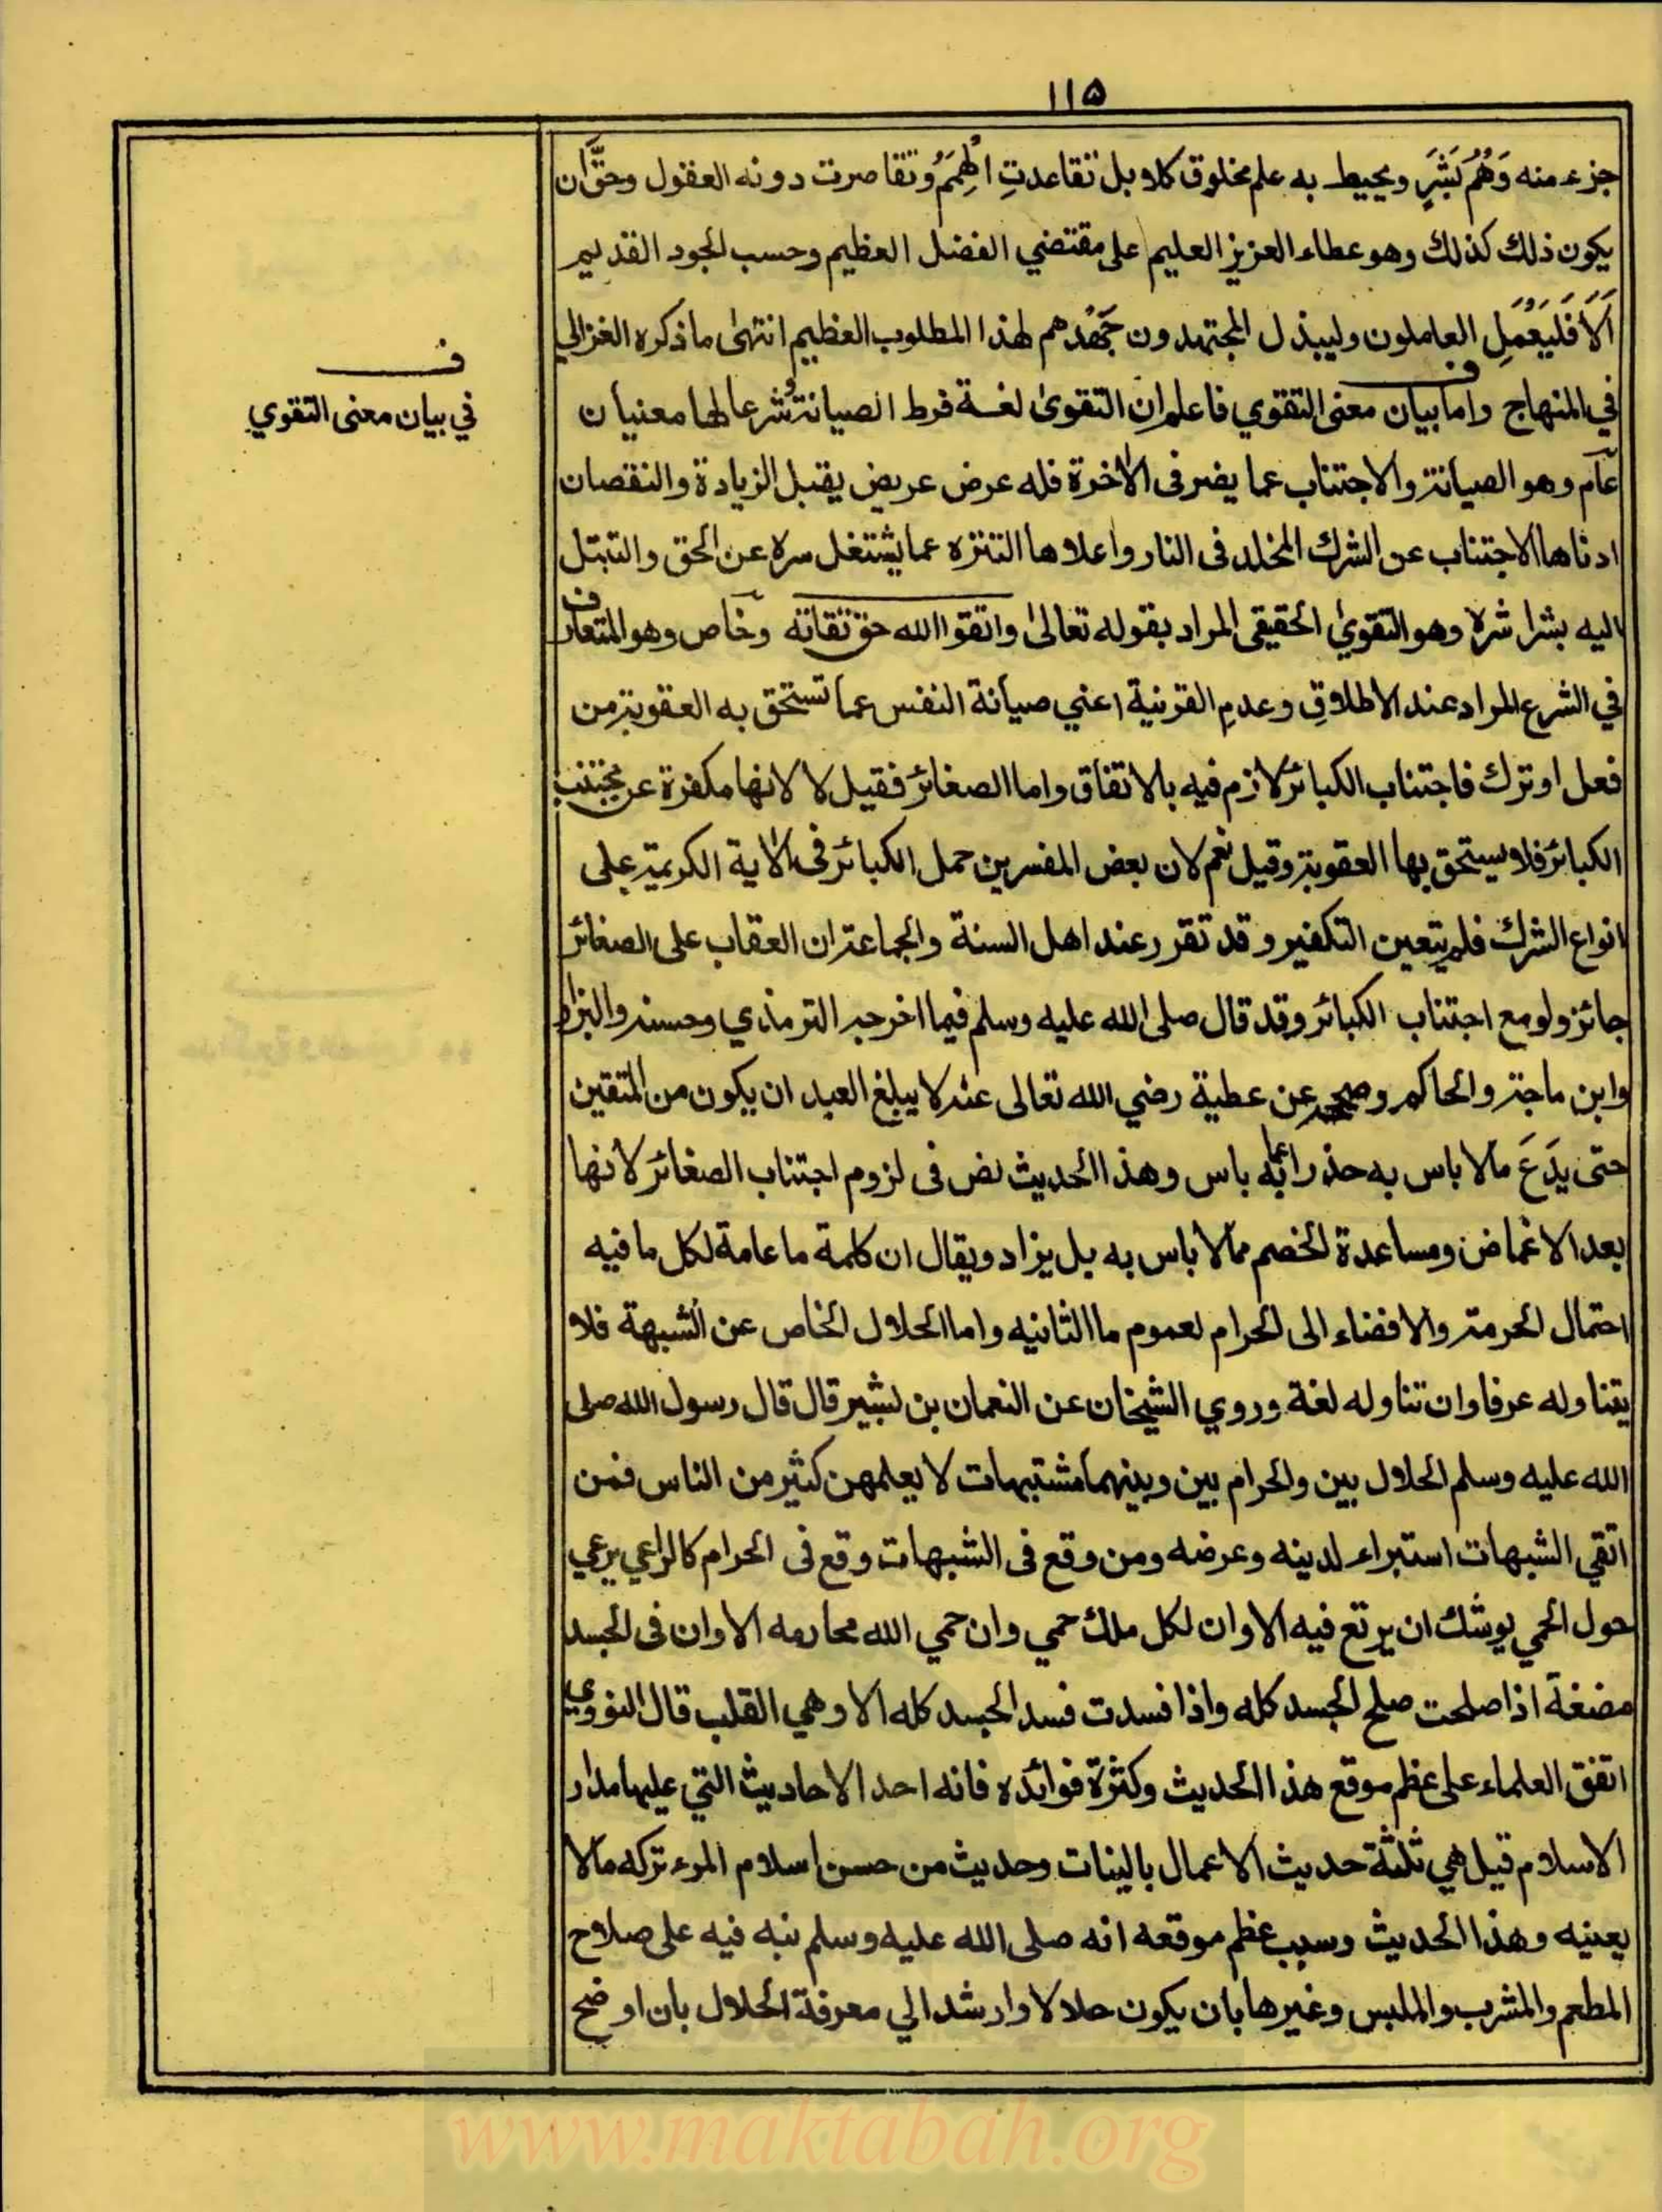 ١١۵
جزء منه وَهْمُ بَشَرٍ ويحيط به علم مخلوق كلا بل تقاعدتِ الهِمَمُ وتقاصرت دونه العقول وحقَّ ان
يكون ذلك كذلك وهو عطاء العزيز العليم على مقتضي الفضل العظيم وحسب الجود القديم
اَلَا فَليَعْمَلِ العاملون وليبذل المجتهدون جَهْدهم لهذا المطلوب العظيم انتهى ما ذكره الغزالي
في المنهاج واما بيان معنى التقوي فاعلم ان التقوى لغة فرط الصيانة وشرعا لها معنيان
عام وهو الصيانة والاجتناب عما يضر فى الاخرة فله عرض عريض يقبل الزيادة والنقصان
ادناها الاجتناب عن الشرك المخلد فى النار واعلاها التنزه عما يشتغل سره عن الحق والتبتل
اليه بشراشره وهو التقوى الحقيقى المراد بقوله تعالى واتقوا الله حق تقاته وخاص وهو المتعارف
في الشرع المراد عند الاطلاق وعدم القرنية اعني صيانة النفس عما تستحق به العقوبة من
فعل او ترك فاجتناب الكبائر لازم فيه بالاتفاق واما الصغائر فقيل لا لانها مكفرة عن مجتنب
الكبائر فلا يستحق بها العقوبة وقيل نعم لان بعض المفسرين حمل الكبائر فى الاية الكريمة على
انواع الشرك فلم يتعين التكفير وقد تقرر عند اهل السنة والجماعة ان العقاب على الصغائر
جائز ولو مع اجتناب الكبائر وقد قال صلى الله عليه وسلم فيما اخرجه الترمذي وحسنه والبزار
وابن ماجة والحاكم وصححه عن عطية رضي الله تعالى عنه لا يبلغ العبد ان يكون من المتقين
حتى يَدَعَ مالا باس به حذرا عما به باس وهذا الحديث نص فى لزوم اجتناب الصغائر لانها
بعد الاغماض ومساعدة الخصم مما لا باس به بل يزاد ويقال ان كلمة ما عامة لكل ما فيه
احتمال الحرمة والافضاء الى الحرام لعموم ما الثانيه واما الحلال الخاص عن الشبهة فلا
يتناوله عرفا وان تناوله لغة وروي الشيخان عن النعمان بن بشير قال قال رسول الله صلى
الله عليه وسلم الحلال بين والحرام بين وبينهما مشتبهات لا يعلمهن كثير من الناس فمن
اتقي الشبهات استبراء لدينه وعرضه ومن وقع فى الشبهات وقع فى الحرام كالراعي يرعي
حول الحمي يوشك ان يرتع فيه الا وان لكل ملك حمي وان حمي الله محارمه الا وان فى الجسد
مضغة اذا صلحت صلح الجسد كله واذا فسدت فسد الجسد كله الا وهي القلب قال النووي
اتفق العلماء على عظم موقع هذا الحديث وكثرة فوائده فانه احد الاحاديث التي عليها مدار
الاسلام قيل هي ثلثة حديث الاعمال بالنيات وحديث من حسن اسلام المرء تركه مالا
يعنيه وهذا الحديث وسبب عظم موقعه انه صلى الله عليه وسلم نبه فيه على صلاح
المطعم والمشرب والملبس وغيرها بان يكون حلالا وارشد الي معرفة الحلال بان اوضح
ف
في بيان معنى التقوي
www.maktabah.org